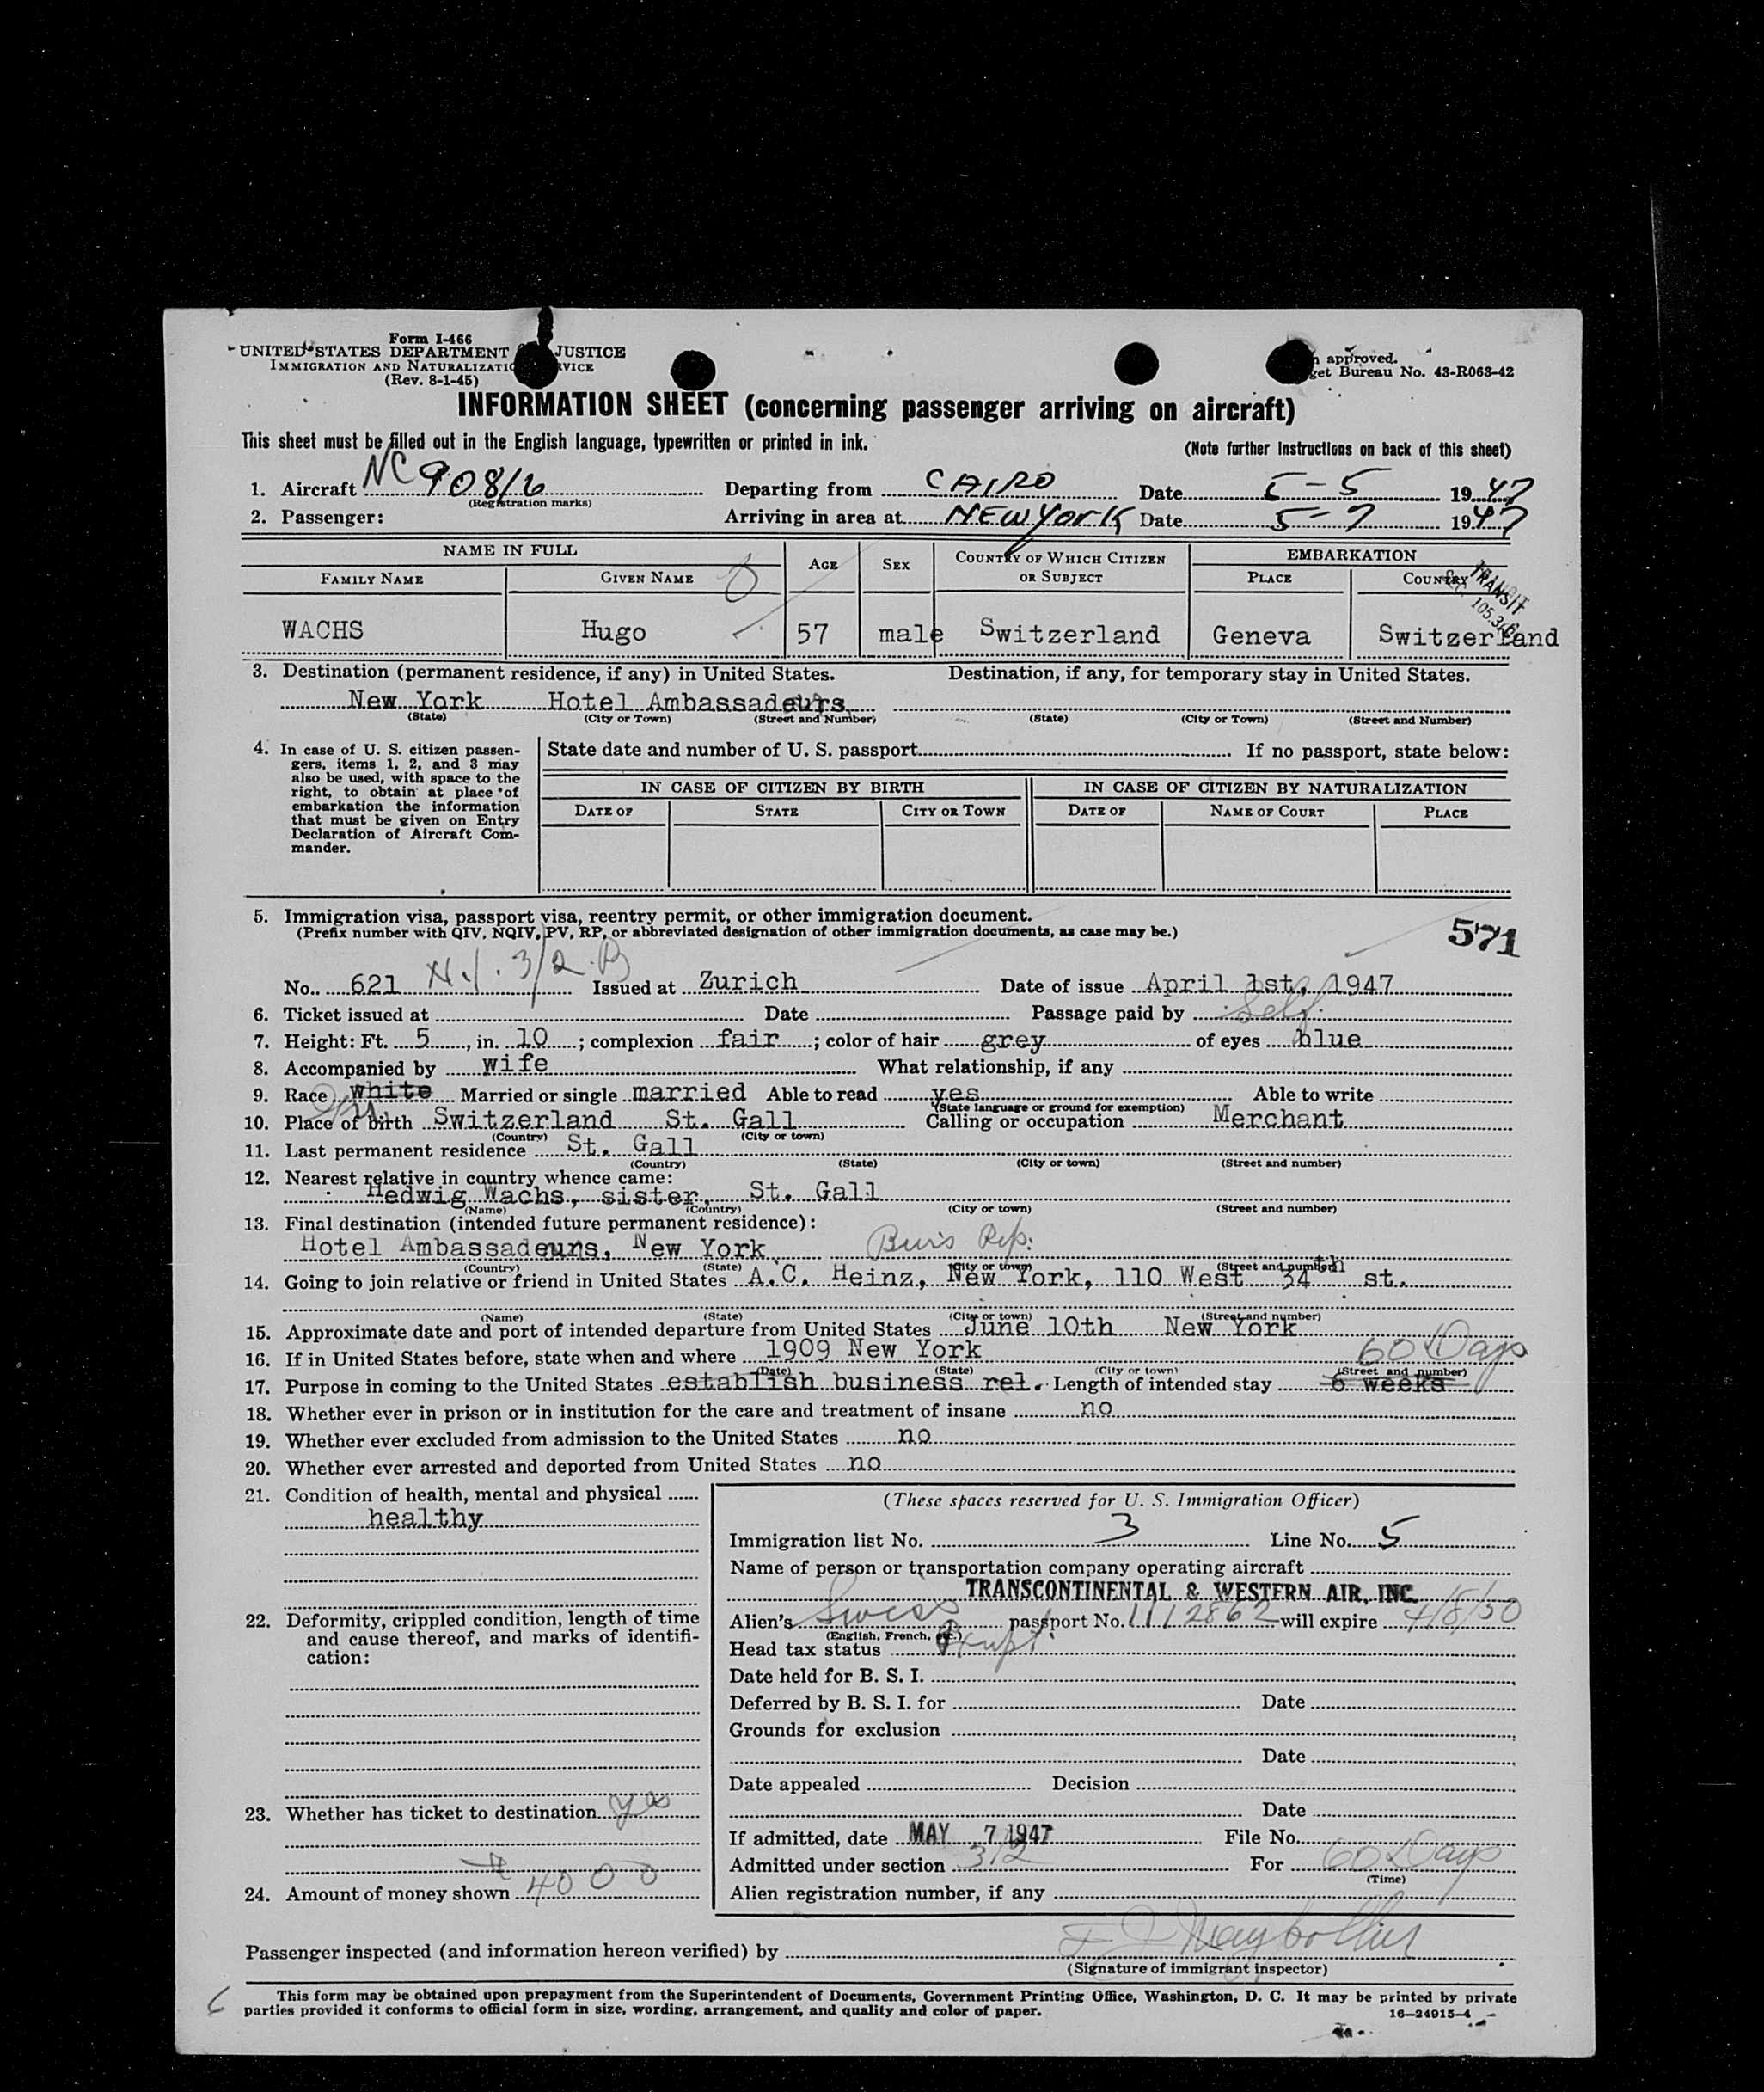 Form I-466
UNITED STATES DEPARTMENT JUSTICE
IMMIGRATION AND NATURALIZATION SERVICE
(Rev. 8-1-45)
approved.
Budget Bureau No. 43-R063-42
INFORMATION SHEET (concerning passenger arriving on aircraft)
This sheet must be filled out in the English language, typewritten or printed in ink. (Note further instructions on back of this sheet)
1. Aircraft NC 90816 Departing from CAIRO Date 5-5 1947
(Registration marks)
2. Passenger: Arriving in area at NEW YORK Date 5-7 1947
NAME IN FULL AGE SEX COUNTRY OF WHICH CITIZEN OR SUBJECT EMBARKATION
FAMILY NAME GIVEN NAME PLACE COUNTRY
TRANSIT
WACHS Hugo 57 male Switzerland Geneva Switzerland
3. Destination (permanent residence, if any) in United States. Destination, if any, for temporary stay in United States.
New York Hotel Ambassadeurs
(State) (City or Town) (Street and Number) (State) (City or Town) (Street and Number)
4. In case of U. S. citizen passen-
gers, items 1, 2, and 3 may
also be used, with space to the
right, to obtain at place of
embarkation the information
that must be given on Entry
Declaration of Aircraft Com-
mander.
State date and number of U. S. passport If no passport, state below:
IN CASE OF CITIZEN BY BIRTH IN CASE OF CITIZEN BY NATURALIZATION
DATE OF STATE CITY OR TOWN DATE OF NAME OF COURT PLACE
5. Immigration visa, passport visa, reentry permit, or other immigration document.
(Prefix number with QIV, NQIV, PV, RP, or abbreviated designation of other immigration documents, as case may be.)
571
No. 621 3/2 B Issued at Zurich Date of issue April 1st, 1947
6. Ticket issued at Date Passage paid by self
7. Height: Ft. 5, in. 10; complexion fair; color of hair grey of eyes blue
8. Accompanied by wife What relationship, if any
9. Race white Married or single married Able to read yes Able to write
(State language or ground for exemption)
10. Place of birth Switzerland St. Gall Calling or occupation Merchant
(Country) (City or town)
11. Last permanent residence St. Gall
(Country) (State) (City or town) (Street and number)
12. Nearest relative in country whence came:
Hedwig Wachs, sister, St. Gall
(Name) (Country) (City or town) (Street and number)
13. Final destination (intended future permanent residence):
Hotel Ambassadeurs, New York Bus Rep:
(Country) (State) (City or town) (Street and number)
14. Going to join relative or friend in United States A.C. Heinz, New York, 110 West 34th st.
(Name) (State) (City or town) (Street and number)
15. Approximate date and port of intended departure from United States June 10th New York
16. If in United States before, state when and where 1909 New York 60 Days
(Date) (State) (City or town) (Street and number)
17. Purpose in coming to the United States establish business rel. Length of intended stay 6 weeks
18. Whether ever in prison or in institution for the care and treatment of insane no
19. Whether ever excluded from admission to the United States no
20. Whether ever arrested and deported from United States no
21. Condition of health, mental and physical
healthy
22. Deformity, crippled condition, length of time
and cause thereof, and marks of identifi-
cation:
23. Whether has ticket to destination yes
24. Amount of money shown 4000
(These spaces reserved for U. S. Immigration Officer)
Immigration list No. 3 Line No. 5
Name of person or transportation company operating aircraft
TRANSCONTINENTAL & WESTERN AIR, INC.
Alien's Swiss passport No. 1112862 will expire 4/8/50
(English, French, etc.)
Head tax status Exempt
Date held for B. S. I.
Deferred by B. S. I. for Date
Grounds for exclusion
Date
Date appealed Decision
Date
If admitted, date MAY 7 1947 File No.
Admitted under section 3/2 For 60 Days
(Time)
Alien registration number, if any
Passenger inspected (and information hereon verified) by
(Signature of immigrant inspector)
This form may be obtained upon prepayment from the Superintendent of Documents, Government Printing Office, Washington, D. C. It may be printed by private
parties provided it conforms to official form in size, wording, arrangement, and quality and color of paper.
16—24915-4